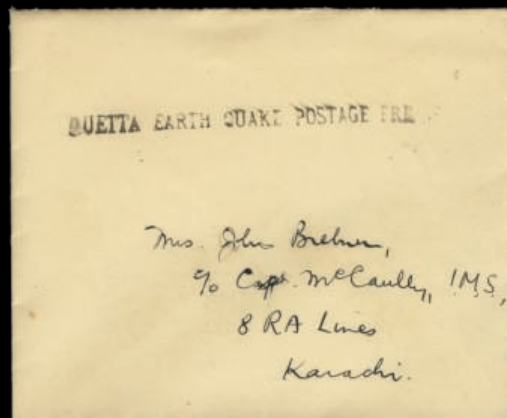 QUETTA EARTH QUAKE POSTAGE FRE
Mrs. John Brebner,
c/o Capt. McCaully, I.M.S,
8 RA Lines
Karachi.